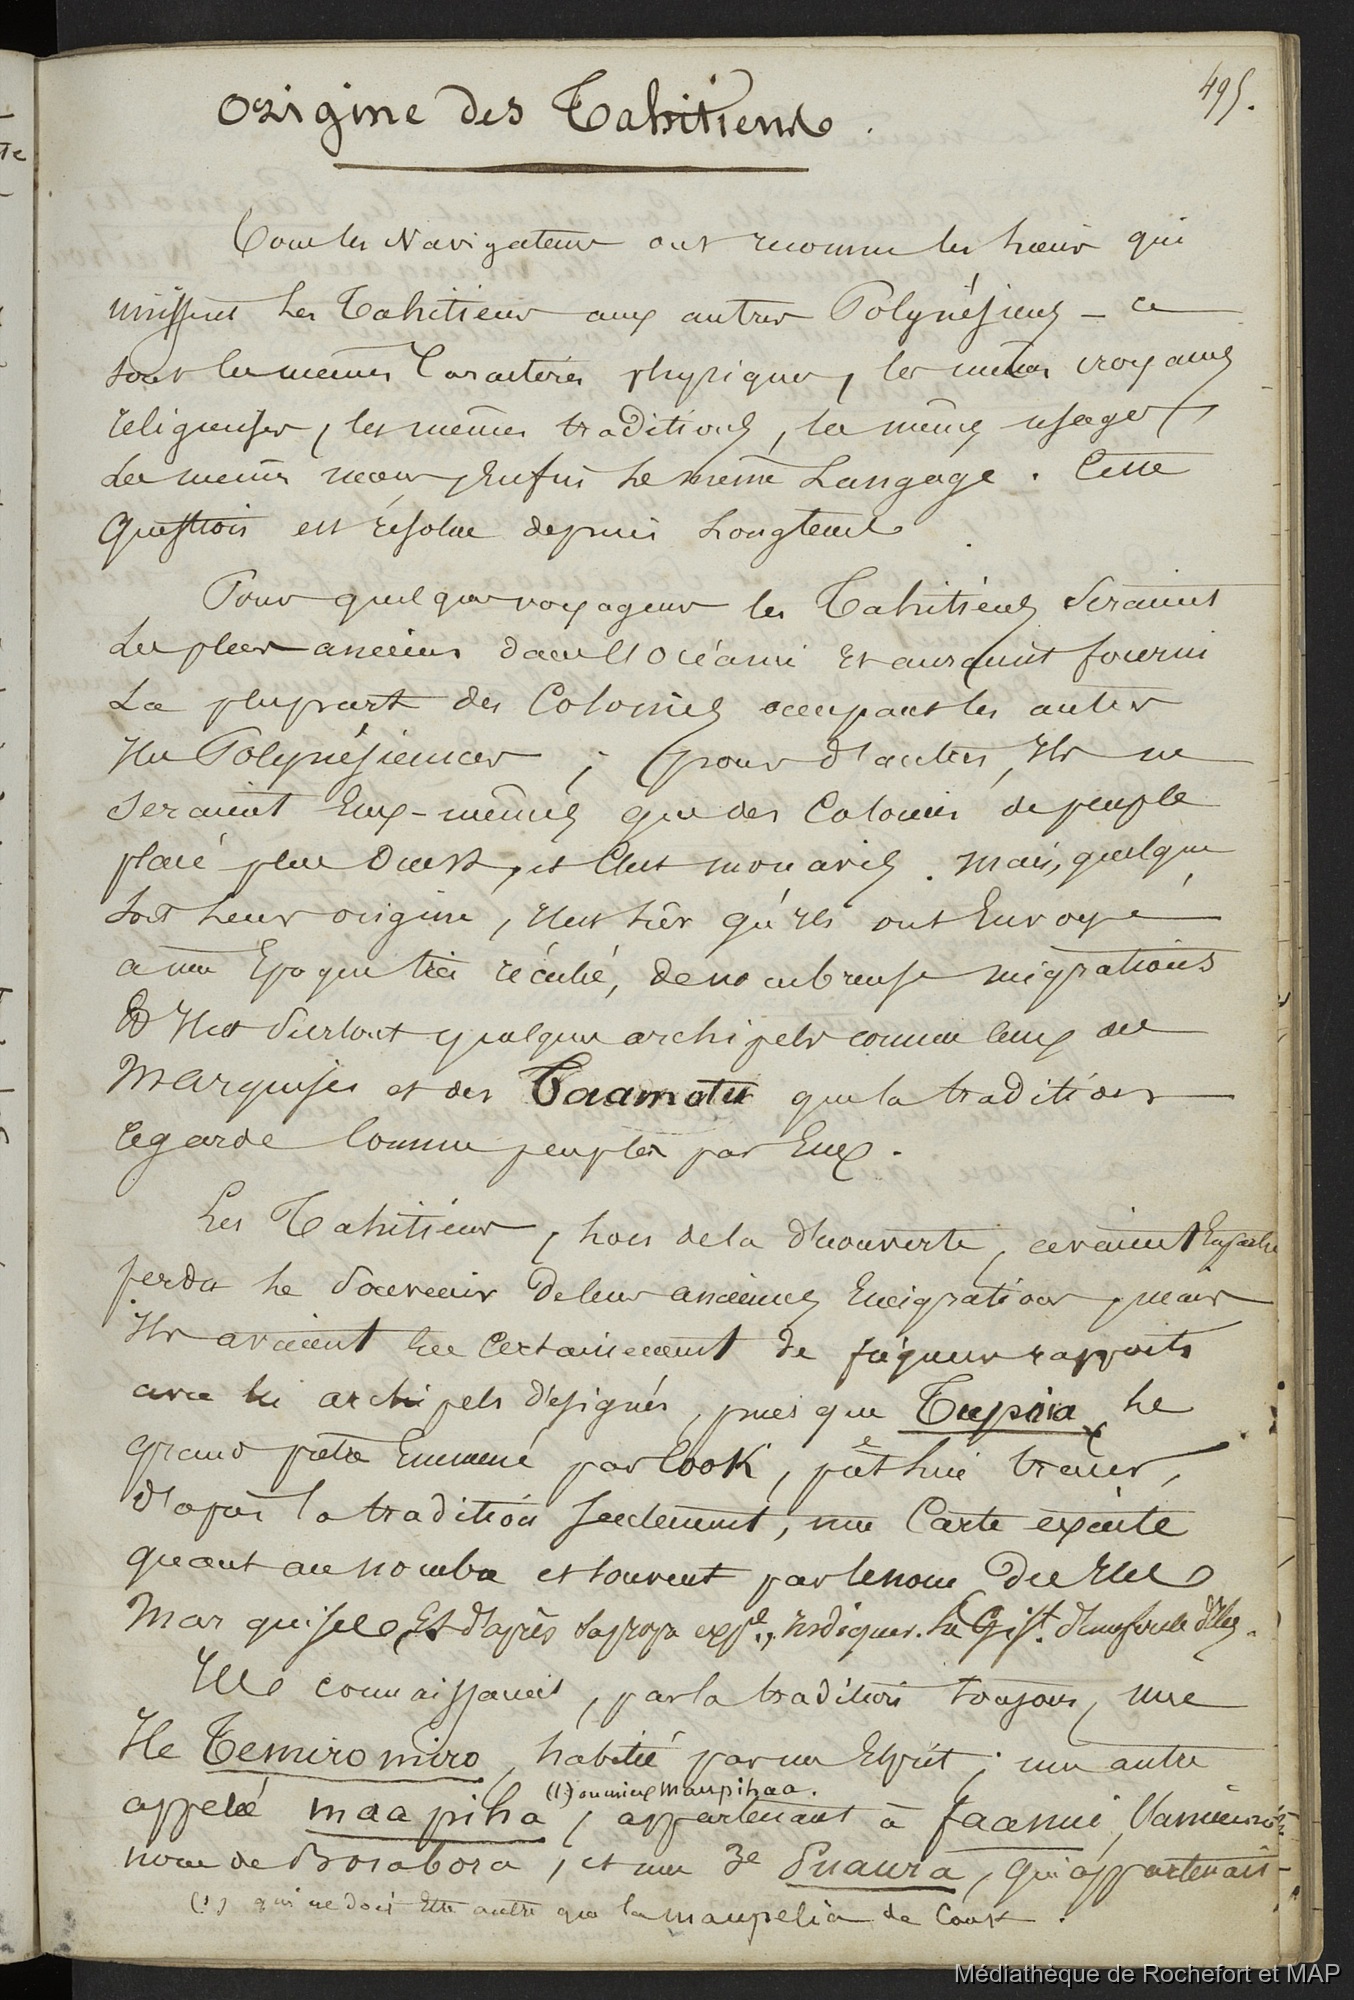 495.
Origine des Tahitiens.
Tous les Navigateurs ont reconnu les liens qui
unissent les Tahitiens aux autres Polynésiens - ce
sont les mêmes Caractères physiques, les mêmes croyances
religieuses, les mêmes traditions, les mêmes usages,
les mêmes mœurs, enfin le même Langage. Cette
Question est résolue depuis Longtems.
Pour quelques voyageurs les Tahitiens Seraient
les plus anciens dans l'Océanie et auraient fourni
La plupart des Colonies occupant les autres
Iles Polynésiennes; pour d'autres, Ils ne
seraient Eux-mêmes que des Colonies de peuple
placé plus Ouest, et c'est mon avis. Mais, quelque
soit leur origine, Il est sûr qu'ils ont Envoyé
à une Epoque très réculée, de nombreuses migrations
Et Il est surtout quelques archipels comme ceux des
Marquises et des Taamotu que la tradition
regarde Comme peuplés par Eux.
Les Tahitiens, lors de la découverte, avaient
perdu le Souvenir de leurs anciennes Emigrations, mais
Ils avaient eu Certainement de fréquens rapports
avec les archipels désignés, puisque Tupaia le
grand prêtre Emmené par Cook, pût lui tracer,
d'après la tradition Seulement, une Carte exacte
quant au nombre et souvent par le nom des Iles
Marquises, Et d'après sa propre exp.ce, Indiquer d'une foule d'Iles.
Ils connaissaient, par la tradition toujours, une
Ile Temiromiro, habitée par un Esprit; une autre
(1) ou mieux Maupihaa.
appelée maapiha, appartenant à faanui, l'ancien
nom de Borabora, et une 3e Puaura, qui appartenait
(1) qui ne doit Etre autre que la maupelia de Cook.
Médiathèque de Rochefort et MAP